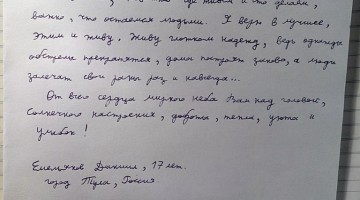 где живём и что делаем,
важно, что остаёмся людьми. Я верю в лучшее,
этим и живу. Живу глотком надежд, верю однажды
обстрелы прекратятся, дома построят заново, а люди
залечат свои раны раз и навсегда...
От всего сердца мирного неба Вам над головой,
солнечного настроения, доброты, тепла, уюта и
улыбок!
Даниил, 17 лет.
город Тула, Россия.